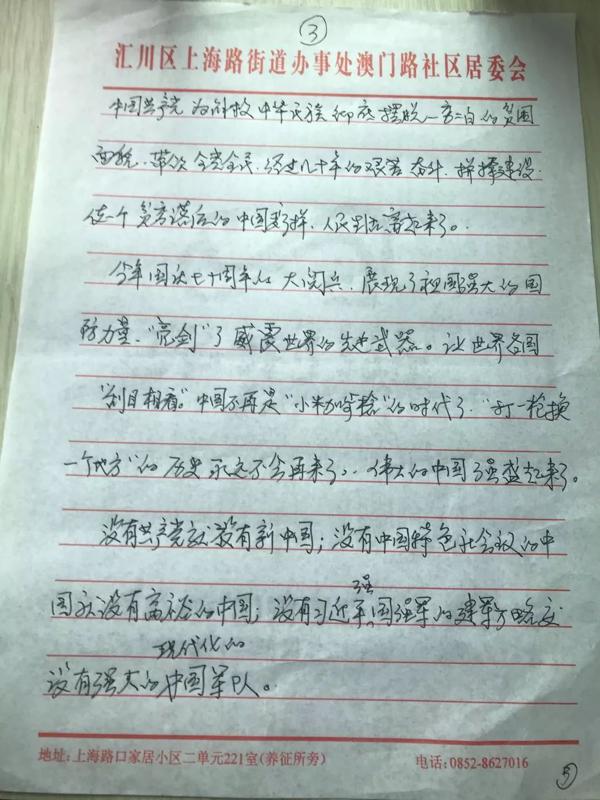 ③
汇川区上海路街道办事处澳门路社区居委会
中国共产党为解救中华民族彻底摆脱一穷二白的贫困
面貌、带领全党全民、经过几十年的艰苦奋斗、拼搏建设、
使一个贫穷落后的中国变样、人民生活富起来了。
今年国庆七十周年的大阅兵、展现了祖国强大的国
防力量、“亮剑”了威震世界的先进武器。让世界各国
“刮目相看”。中国不再是“小米加步枪”的时代了、“打一枪换
一个地方”的历史永远不会再来了、伟大的中国强盛起来了。
没有共产党就没有新中国；没有中国特色社会议的中
强
国就没有富裕的中国；没有习近平国强军的建军方略就
现代化的
没有强大的中国军队。
地址：上海路口家居小区二单元221室(养征所旁) 电话：0852-8627016
5